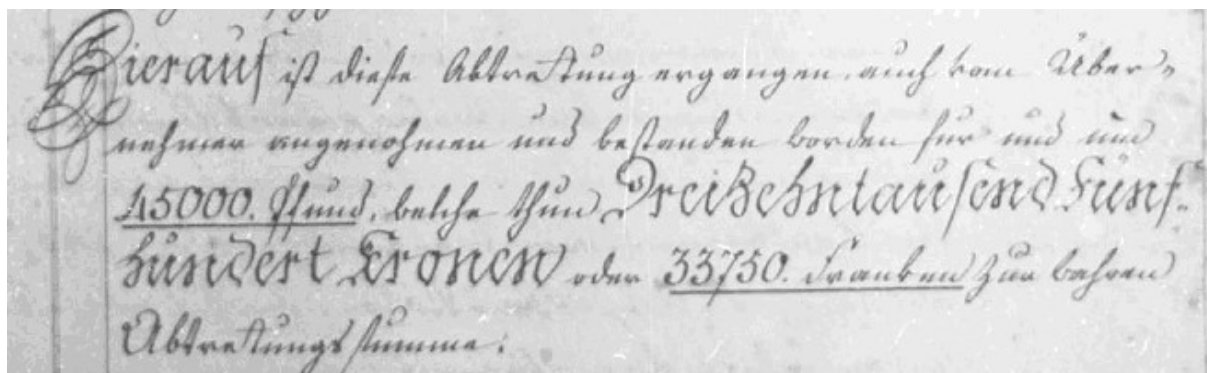 Hierauf ist diese Abtrettung ergangen, auch vom Über-
nehmer angenohmen und bestanden worden für und um
45000. Pfund, welche thun Dreizehntausend Fünf-
hundert Kronen oder 33750. Franken zur wahren
Abtrettungssumme.